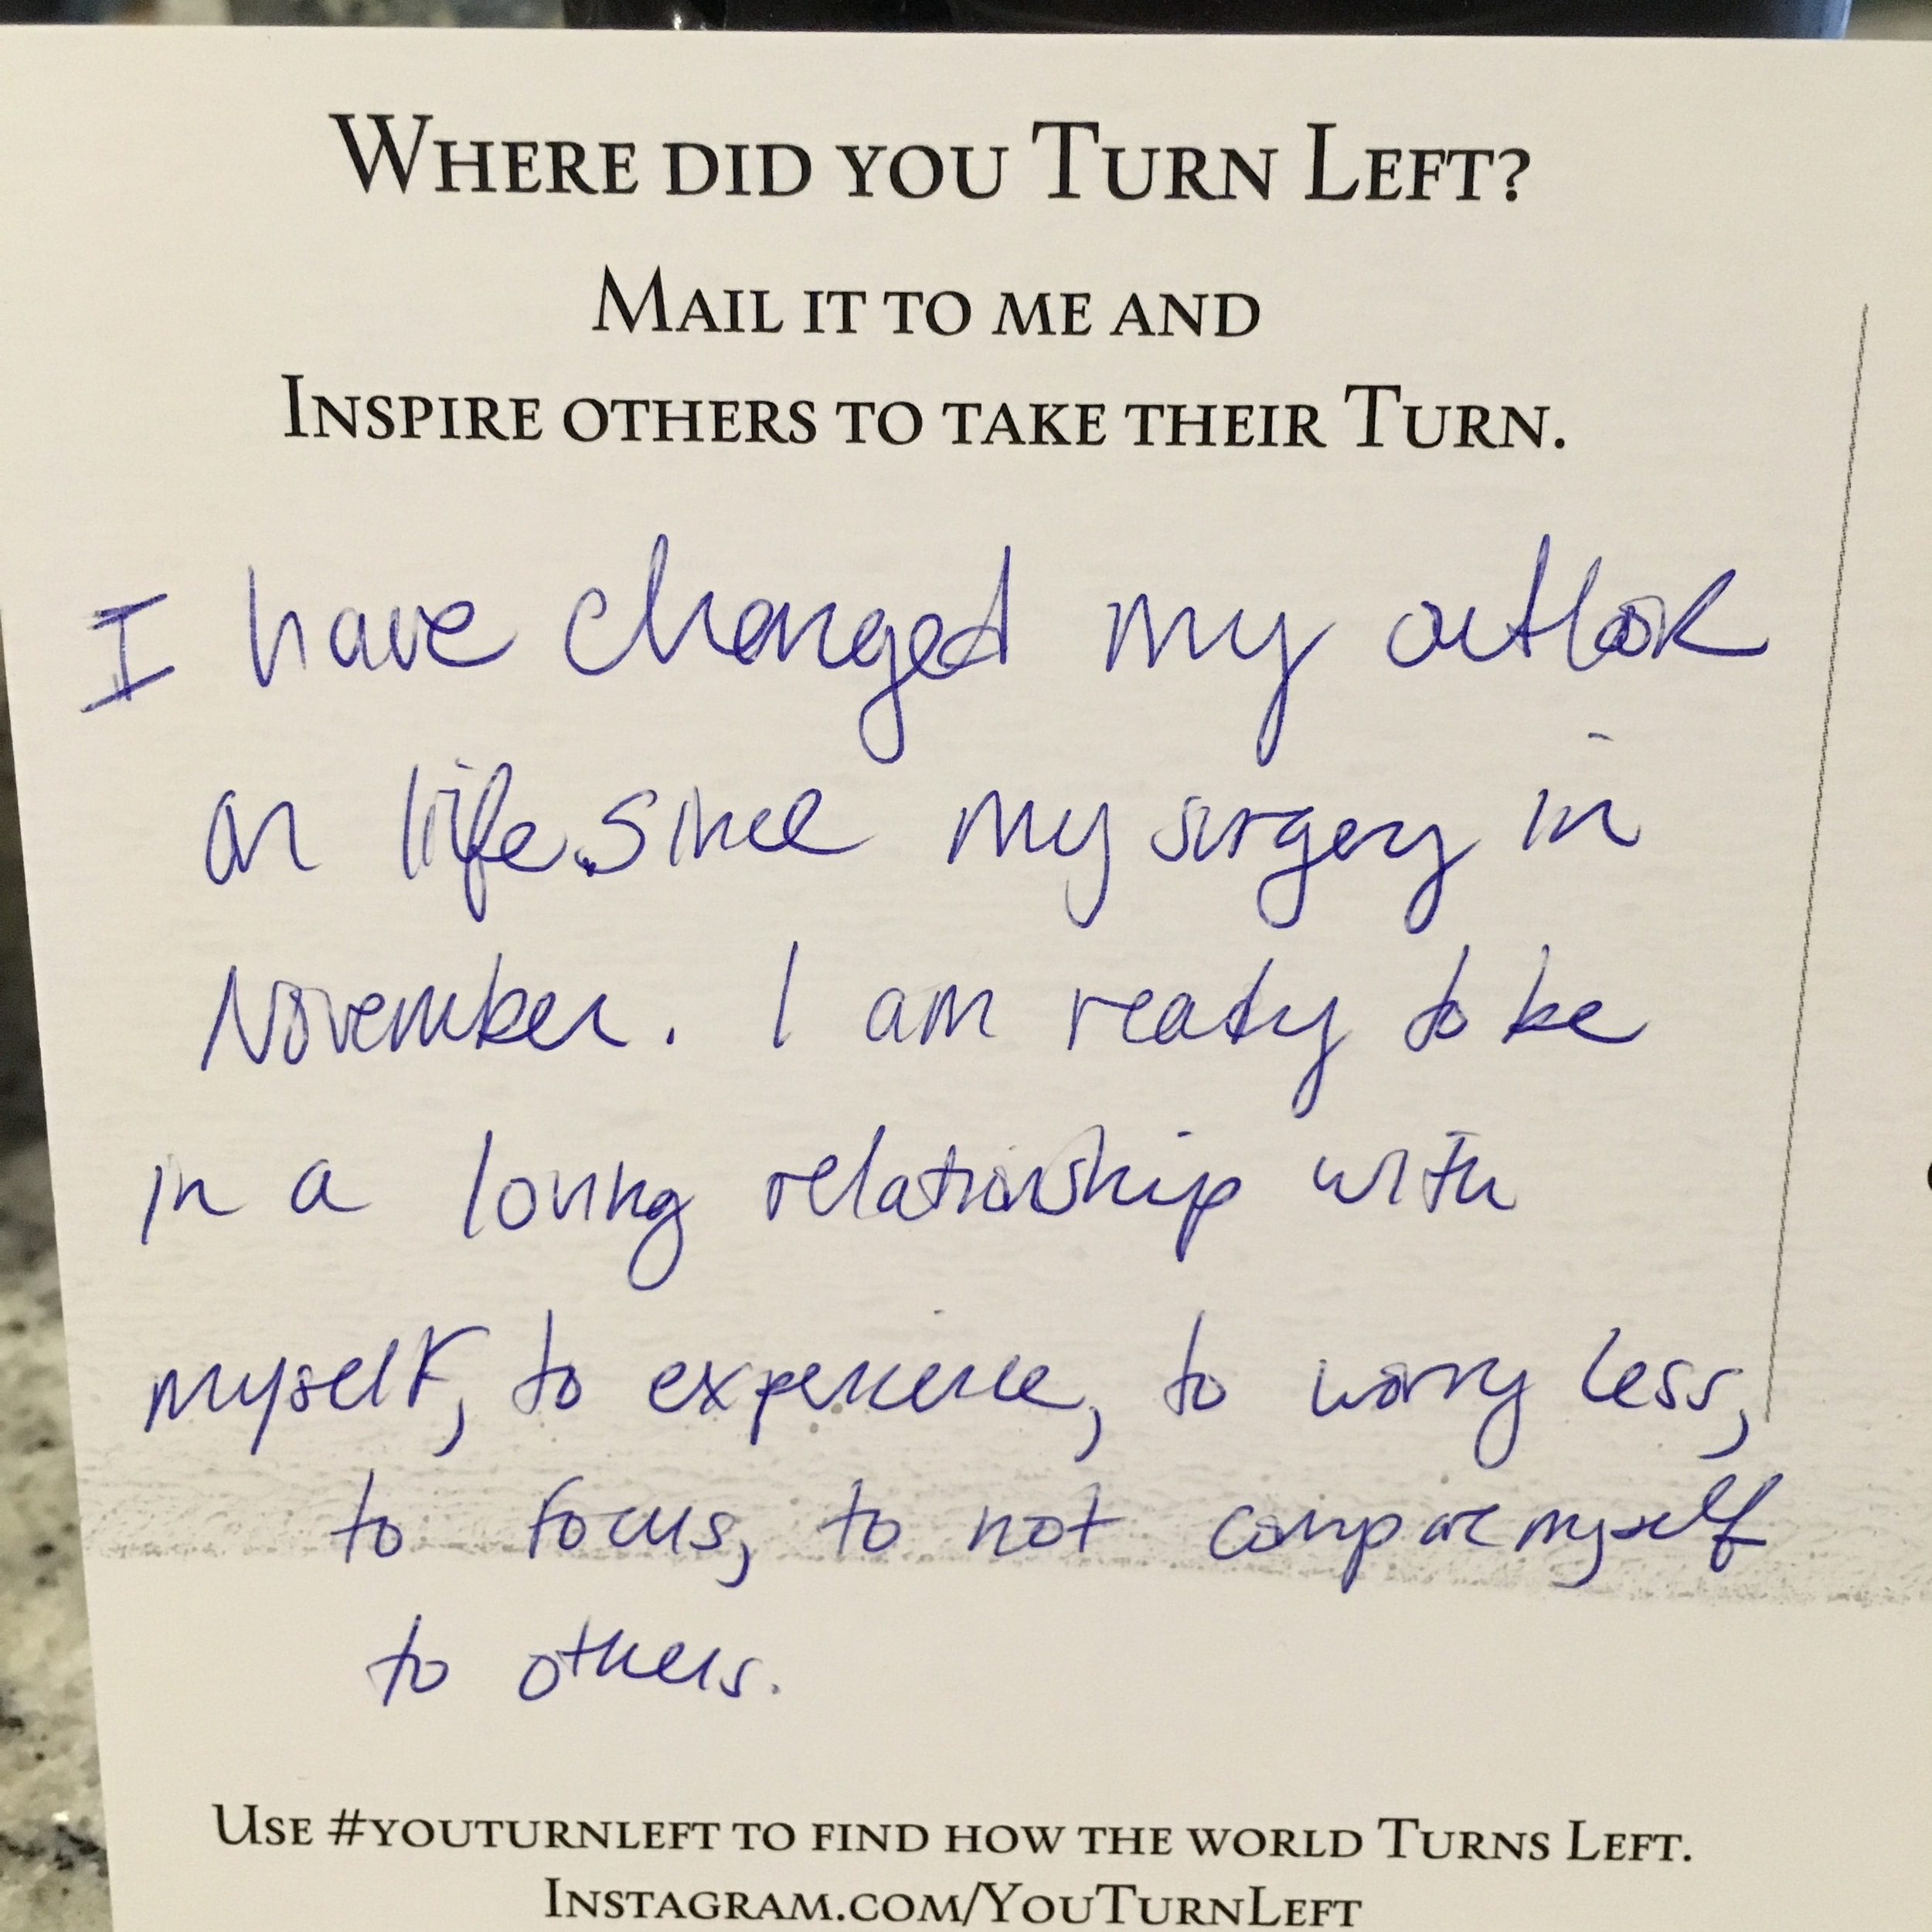 Where did you Turn Left?
Mail it to me and
Inspire others to take their Turn.
I have changed my outlook
on life. Since my surgery in
November. I am ready to be
in a loving relationship with
myself, to experience, to worry less,
to focus, to not compare myself
to others.
Use #youturnleft to find how the world Turns Left.
Instagram.com/YouTurnLeft